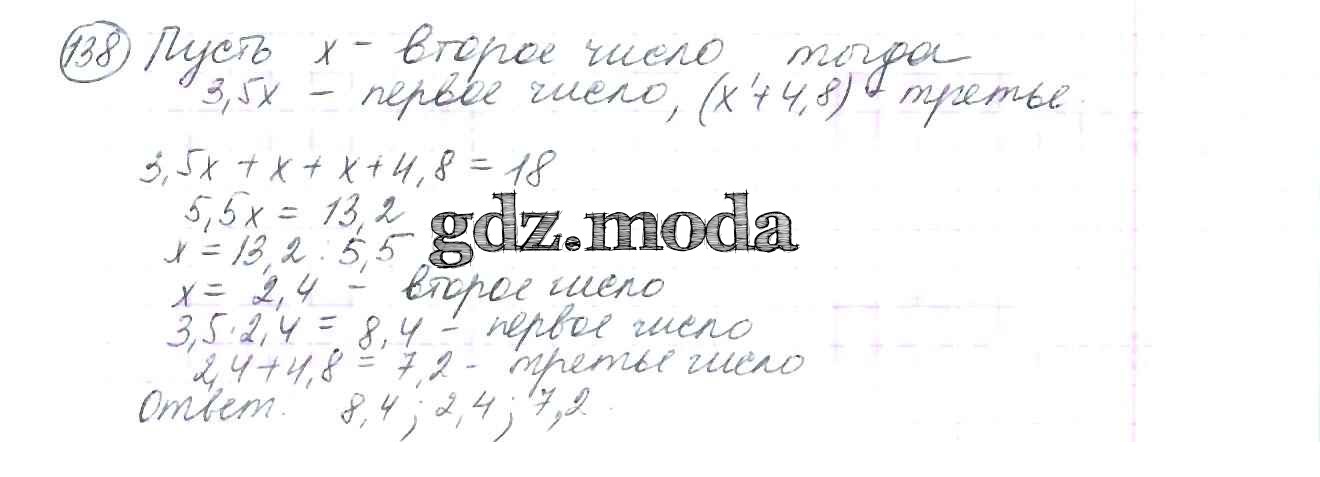 138 Пусть x - второе число тогда
3,5x - первое число, (x+4,8) - третье.
3,5x + x + x + 4,8 = 18
5,5x = 13,2
gdz.moda
x = 13,2 : 5,5
x = 2,4 - второе число
3,5·2,4 = 8,4 - первое число
2,4+4,8 = 7,2 - третье число
Ответ. 8,4; 2,4; 7,2.